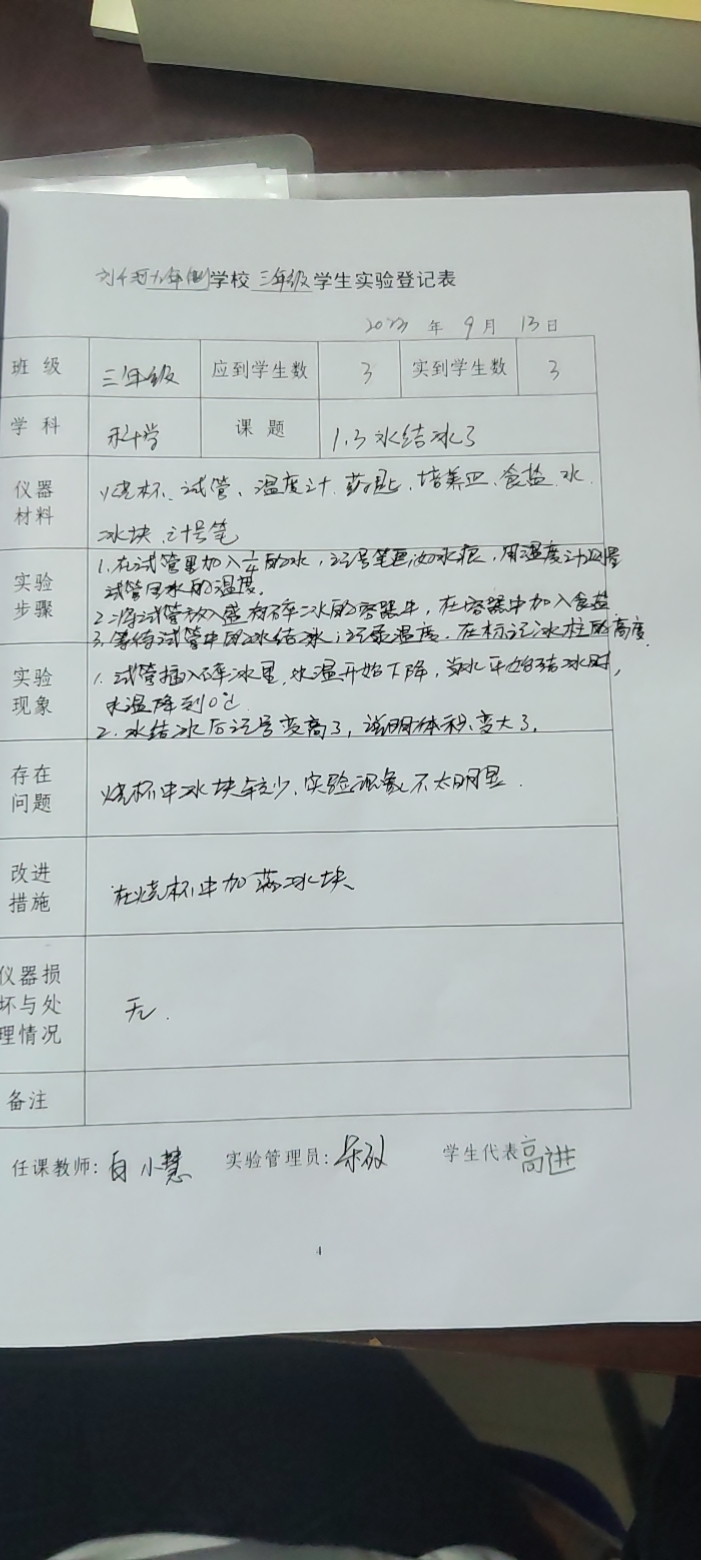 学校三年级学生实验登记表
2023 年 9 月 13 日
班 级 三年级 应到学生数 3 实到学生数 3
学 科 科学 课 题 1.3 水结冰了
仪器 烧杯、试管、温度计、药匙、培养皿、食盐、水
材料 冰块、计号笔
实验 1.在试管里加入1/4的水,记号笔画好水痕,用温度计测量
步骤 试管里水的温度.
2.将试管放入盛有碎冰的容器中,在容器中加入食盐
3.等待试管中的水结冰,记录温度.在标记冰柱的高度.
实验 1.试管插入碎冰里,水温开始下降,当水开始结冰时,
现象 水温降到0℃
2.水结冰后记号变高了,说明体积变大了.
存在
问题 烧杯中冰块较少,实验现象不太明显.
改进
措施 在烧杯中加满冰块
仪器损
坏与处 无.
理情况
备注
任课教师:白小慧 实验管理员: 学生代表 高进
4